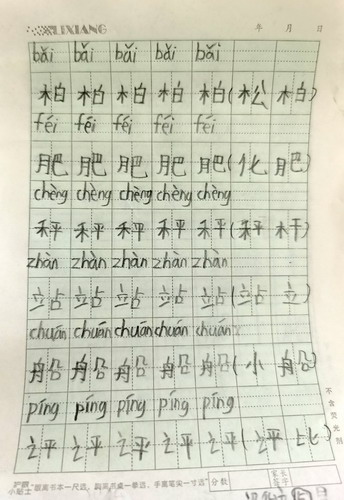 LIXIANG 年 月 日
bǎi bǎi bǎi bǎi bǎi
柏 柏 柏 柏 柏(松 柏)
féi féi féi féi féi
肥 肥 肥 肥 肥(化 肥)
chèng chèng chèng chèng chèng
秤 秤 秤 秤 秤(秤 杆)
zhàn zhàn zhàn zhàn zhàn
站 站 站 站 站(站 立)
chuán chuán chuán chuán chuán
船 船 船 船 船(小 船)
píng píng píng píng píng
评 评 评 评 评(评 比)
不含荧光剂
护眼小贴士 "眼离书本一尺远，胸离书桌一拳远，手离笔尖一寸远" 分数 家长签字